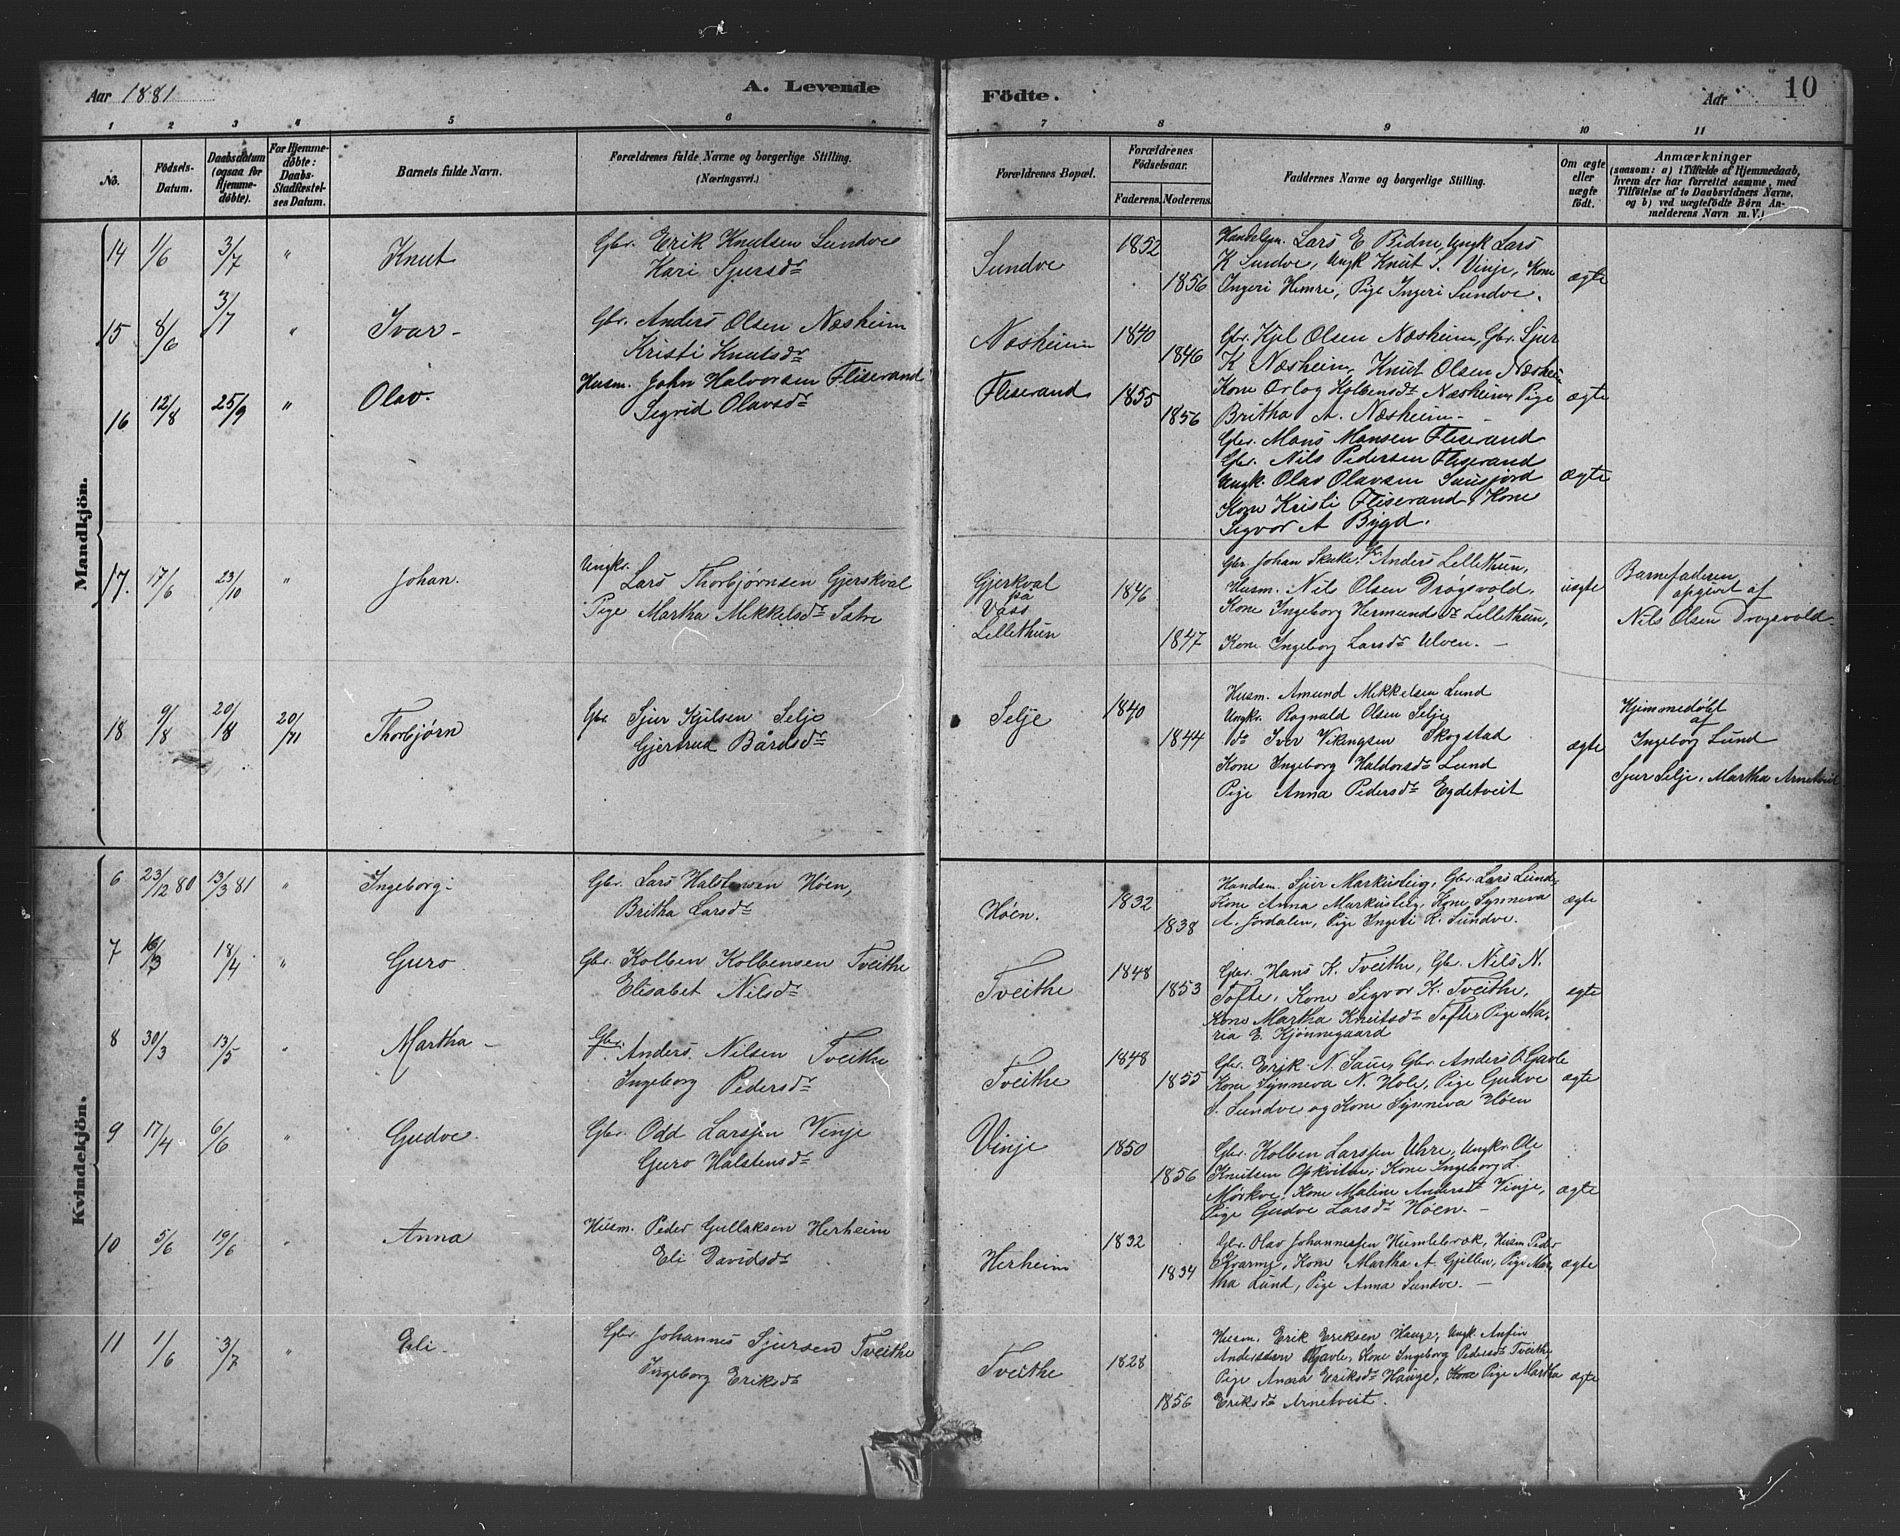 Aar 1881
A. Levende
Födte.
Aar
10
1 2 3 4 5 6 7 8 9 10 11
No.
Födsels-Datum.
Daabsdatum (ogsaa for Hjemmedöbte).
For Hjemmedöbte: Daabs-Stadfæstelses Datum.
Barnets fulde Navn.
Forældrenes fulde Navne og borgerlige Stilling. (Næringsvei.)
Forældrenes Bopæl.
Forældrenes Födselsaar.
Faderens. Moderens.
Faddernes Navne og borgerlige Stilling.
Om ægte eller uægte födt.
Anmærkninger
(saasom: a) i Tilfælde af Hjemmedaab, hvem der har forrettet samme, med Tilföielse af to Daabsvidners Navne, og b) ved uægtefödte Börn Anmelderens Navn m. V.)
Mandkjön.
14 1/6 3/7 " Knut
Gbr. Erik Knutsen Sundve
Kari Sjursdr
Sundve 1852 1856
Handelsm. Lars E Bidne, Ungk Lars
K Sundve, Ungk Knut S. Vinje, Kone
Ingeri Himre, Pige Ingeri Sundve.
ægte
15 8/6 3/7 " Ivar -
Gbr. Anders Olsen Næsheim
Kristi Knutsdr
Næsheim 1840 1846
Gbr. Kjel Olsen Næsheim, Gbr. Sjur
K Næsheim, Knut Olsen Næsheim
Kone Orlog Kolbensdr Næsheim, Pige
Britha A. Næsheim -
ægte
16 12/8 25/9 " Olav.
Husm. John Halvorsen Fliserand
Sigrid Olavsdr
Fliserand 1855 1856
Gbr. Mons Monsen Fliserand
Gbr. Nils Pedersen Fliserand
Ungk. Olav Olavsen
Kone Kristi Fliserand, Kone
Sigvor A Bygd.
ægte
17. 17/6 23/10 " Johan.
Ungkr. Lars Thorbjørnsen Gjerskval
Pige Martha Mikkelsdr Satre
Gjerkval
på
Voss
Lillethun
1846 1847
Gbr Johan Skutle, Gbr Anders Lillethun,
Husm. Nils Olsen Drøgsvold.
Kone Ingeborg Hermundsdr Lillethun,
Kone Ingeborg Larsdr Ulven. -
uægte
Barnefaderen
opgivet af
Nils Olsen Drogsvold.
18 9/8 20/18 20/11 Thorbjørn
Gbr Sjur Kjelsen Selje
Gjertrud Bårdsdr
Selje 1840 1844
Husm. Amund Mikkelsen Lund
Ungkr. Rognald Olsen Selje
do Iver Vikingsen Skogstad
Kone Ingeborg Haldorsdr Lund
Pige Anna Pedersdr Egdetveit
ægte
Hjemmedøbt
af
Ingeborg Lund
Sjur Selje, Martha Arnetveit
Kvindekjön.
6 23/12 80 13/3 81 " Ingeborg.
Gbr. Lars Halstensen Höen,
Britha Larsdr
Höen. 1832 1838
Handsm. Sjur Markusteig, Gbr. Lars Lund
Kone Anna Markusteig, Kone Synneva
A. Jordalen, Pige Ingeri K. Sundve.
ægte
7 16/3 18/4 " Guro
Gbr. Kolben Kolbensen Tveithe
Elisabet Nilsdr
Tveithe 1848 1853
Gbr. Hans K. Tveithe, Gbr. Nils N.
Tofte, Kone Sigvor K. Tveithe,
Kone Martha Knutsdr Tofte, Pige Ma-
ria E. Kjönnegaard
ægte
8 30/3 13/5 " Martha -
Gbr. Anders Nilsen Tveithe
Ingeborg Pedersdr
Tveithe 1848 1855
Gbr. Erik N. Saue, Gbr. Anders O. Gavle
Kone Synneva N. Hole, Pige Gudve
S. Sundve og Kone Synneva Höen
ægte
9 17/4 6/6 " Gudve.
Gbr. Odd Larssen Vinje
Guro Halstensdr
Vinje 1850 1856
Gbr. Kolben Larssen Uhre, Ungkr. Ole
Knutsen Opkvitne, Kone Ingeborg L.
Mörkve, Kone Maline Andersdr Vinje,
Pige Gudve Larsdr Höen. -
ægte
10 5/6 19/6 " Anna
Husm. Peder Gullaksen Herheim
Eli Davidsdr
Herheim 1832 1834
Gbr. Olav Johannessen Humlebræk, Husm Peder
Kvarme, Kone Martha A. Gjellen, Pige Mar-
tha Lund, Pige Anna Sundve. -
ægte
11 1/6 3/7 " Eli.
Gbr. Johannes Sjursen Tveithe
Ingeborg Eriksdr
Tveithe 1828 1856
Husm. Erik Eriksen Hauge, Ungk. Anfin
Anderssen Gjavle, Kone Ingeborg Pedersdr Tveithe
Pige Anna Eriksdr Hauge, Kone Pige Martha
Eriksdr Arnetveit.
ægte